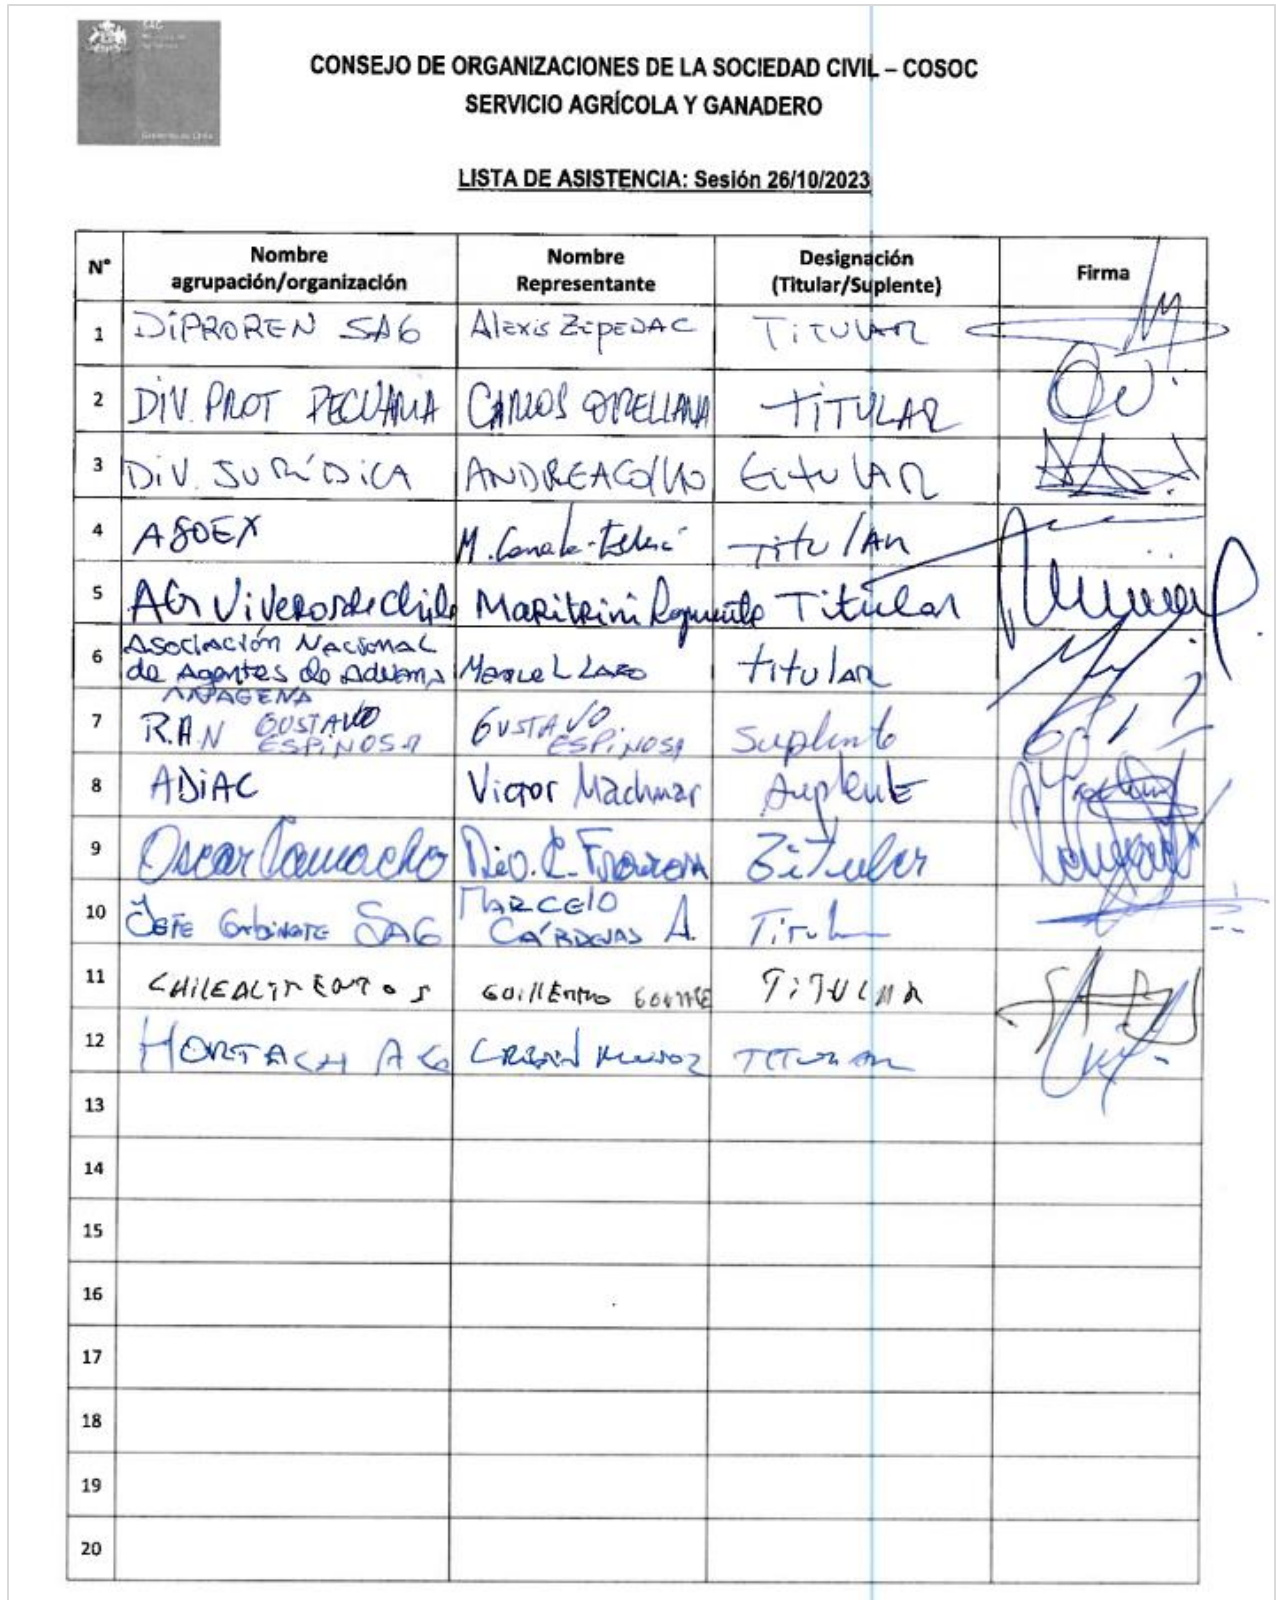 SAG
Gobierno de Chile
CONSEJO DE ORGANIZACIONES DE LA SOCIEDAD CIVIL – COSOC
SERVICIO AGRÍCOLA Y GANADERO
LISTA DE ASISTENCIA: Sesión 26/10/2023
N° Nombre agrupación/organización Nombre Representante Designación (Titular/Suplente) Firma
1 DIPROREN SAG Alexis ZEPEDA C TITULAR
2 DIV. PROT PECUARIA CARLOS ORELLANA TITULAR
3 DIV. JURÍDICA ANDREA COLLAO titulAR
4 ASOEX M. titulAR
5 AG Viveros de Chile Maritrini Titular
6 Asociación Nacional de Agentes de Aduana Manuel LAZO titular
7 ANAGENA R.A.N GUSTAVO ESPINOSA GUSTAVO ESPINOSA Suplente
8 ADIAC Victor Suplente
9 Oscar Camacho Titular
10 Jefe Gabinete SAG MARCELO CÁRDENAS A. Titular
11 CHILEALIMENTOS GUILLERMO TITULAR
12 HORTACH AG MUÑOZ TITULAR
13
14
15
16
17
18
19
20